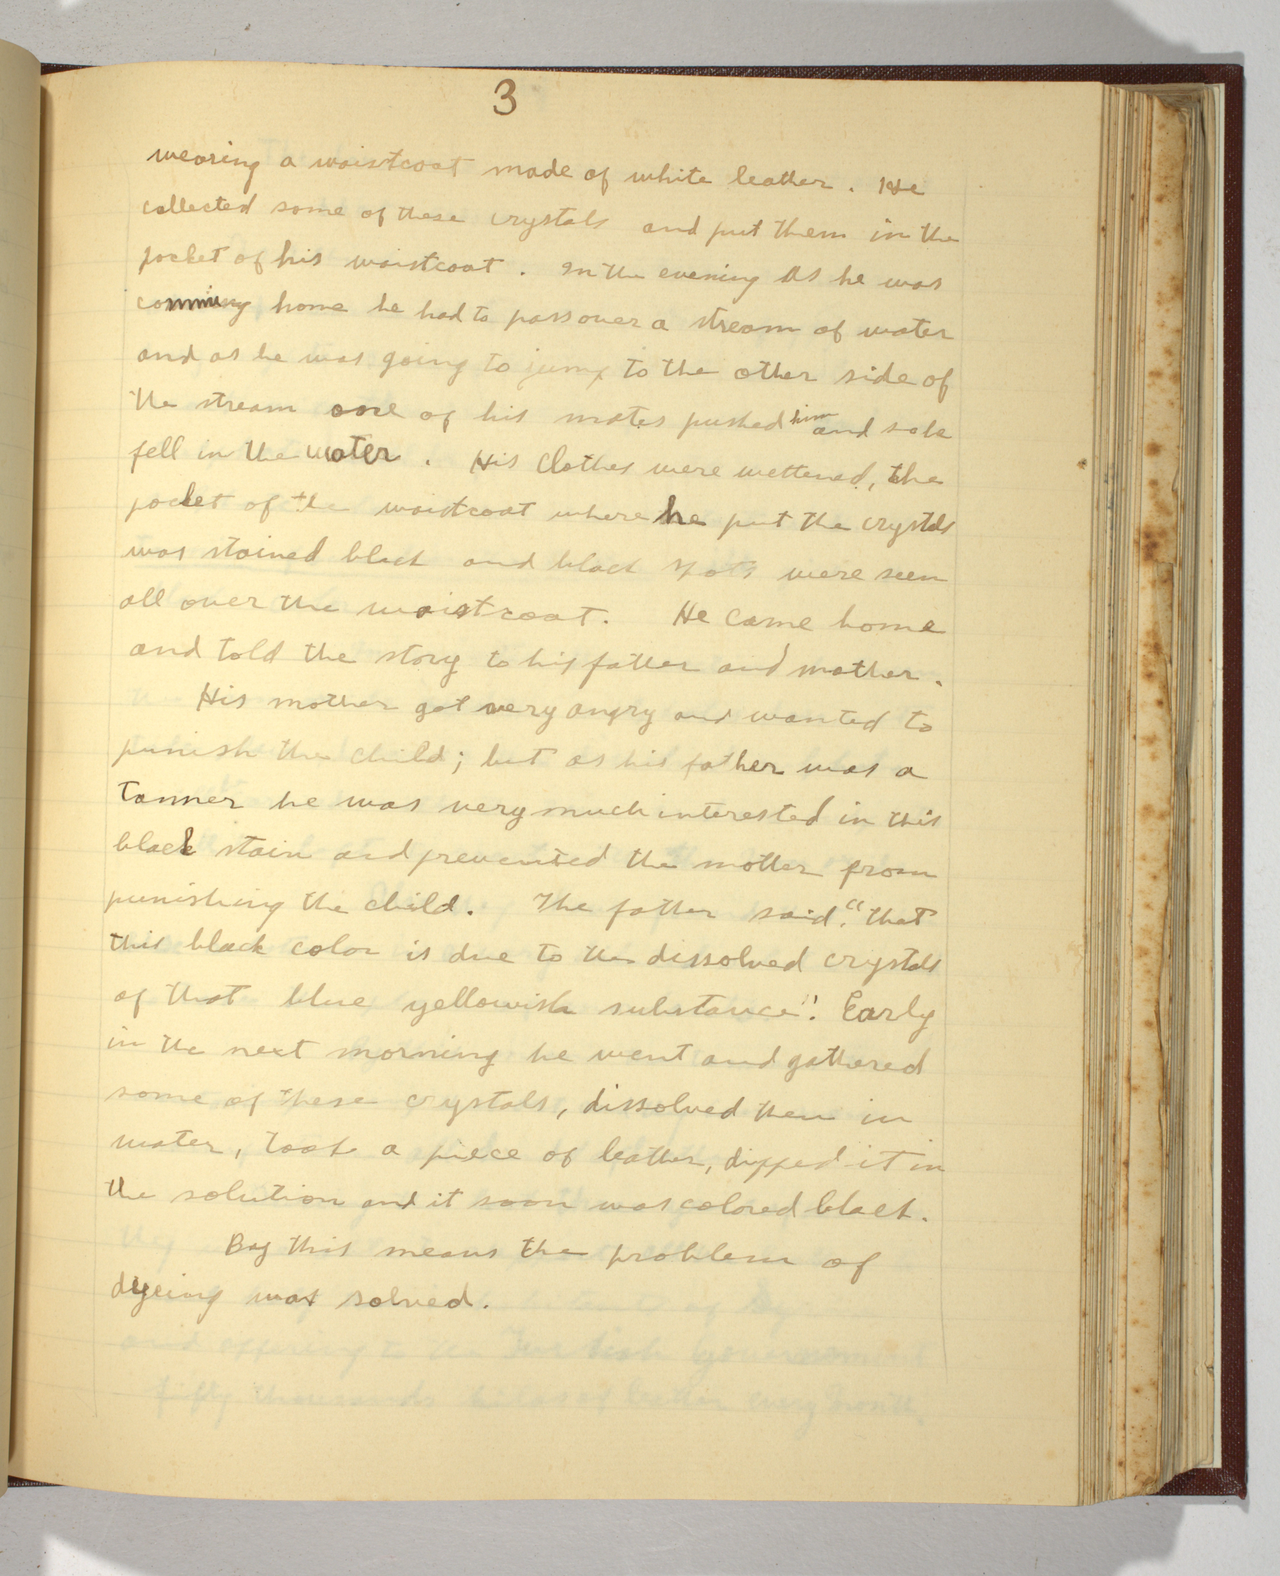 3
wearing a waistcoat made of white leather. He
collected some of these crystals and put them in the
pocket of his waistcoat. In the evening As he was
comming home he had to pass over a stream of water
and as he was going to jump to the other side of
the stream one of his mates pushed him and
fell in the water. His clothes were wettened, the
pocket of the waistcoat where he put the crystals
was stained black and black spots were seen
all over the waistcoat. He came home
and told the story to his father and mother.
His mother got very angry and wanted to
punish the child; but as his father was a
Tanner he was very much interested in this
black stain and prevented the mother from
punishing the child. The father said. "that
this black color is due to the dissolved crystals
of that blue yellowish substance". Early
in the next morning he went and gathered
some of these crystals, dissolved them in
water, took a piece of leather, dipped it in
the solution and it soon was colored black.
By this means the problem of
dyeing was solved.